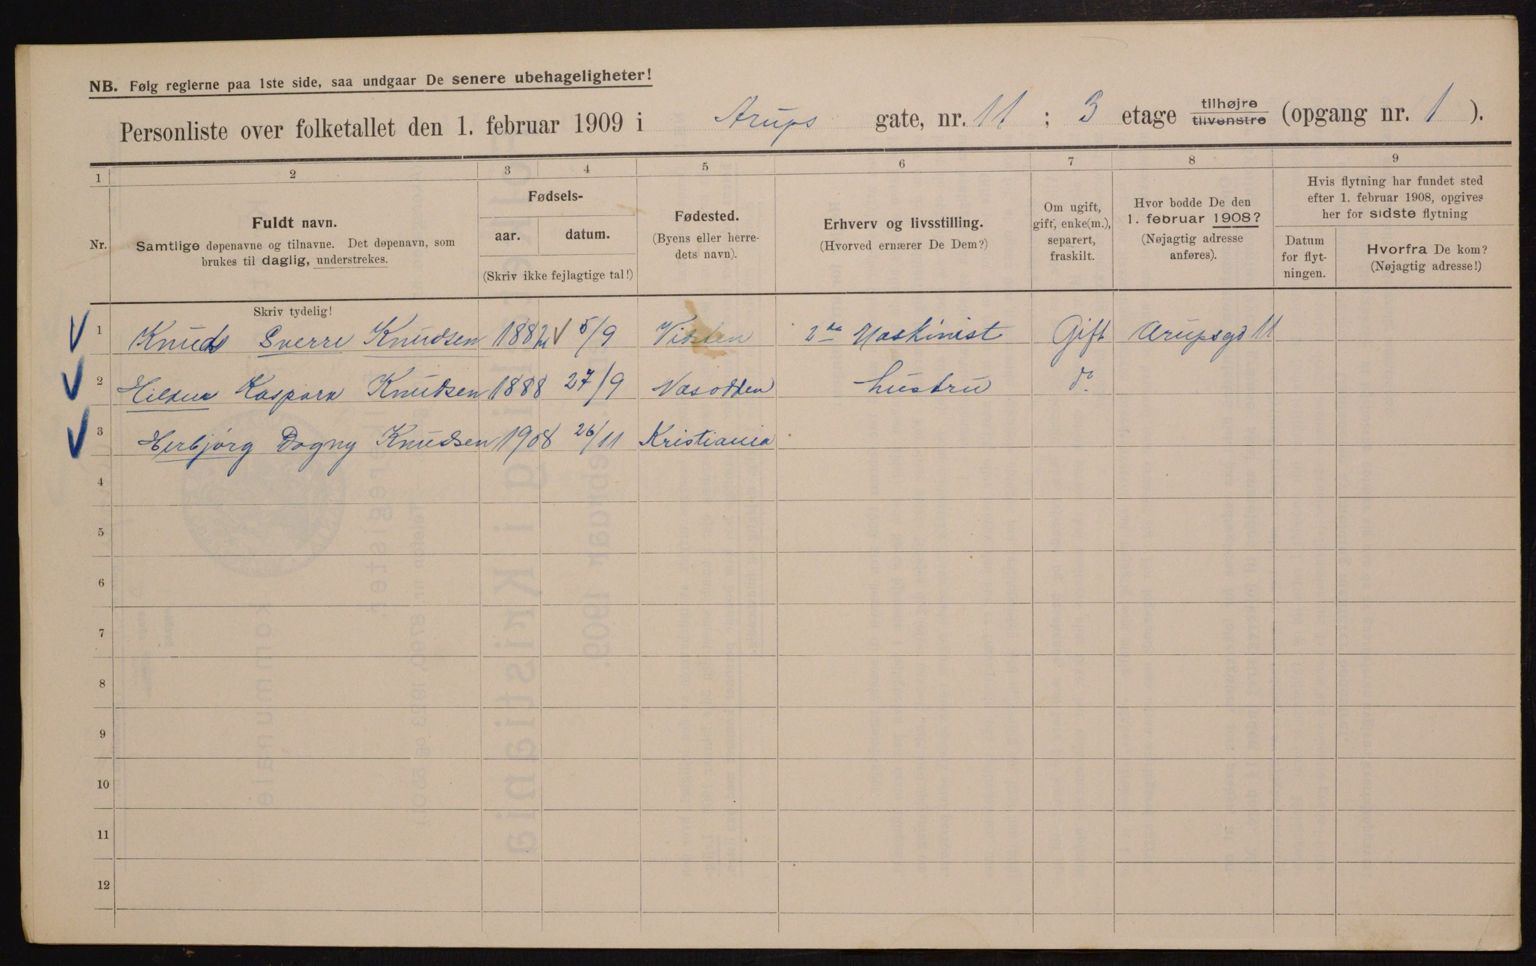 NB. Følg reglerne paa 1ste side, saa undgaar De senere ubehageligheter!
Personliste over folketallet den 1. februar 1909 i Arups gate, nr. 11 ; 3 etage tilhøjre tilvenstre (opgang nr. 1 ).
1 2 3 4 5 6 7 8 9
Nr.
Fuldt navn.
Samtlige døpenavne og tilnavne. Det døpenavn, som
brukes til daglig, understrekes.
Fødsels-
aar. datum.
(Skriv ikke fejlagtige tal!)
Fødested.
(Byens eller herre-
dets navn).
Erhverv og livsstilling.
(Hvorved ernærer De Dem?)
Om ugift,
gift, enke(m.),
separert,
fraskilt.
Hvor bodde De den
1. februar 1908?
(Nøjagtig adresse
anføres).
Hvis flytning har fundet sted
efter 1. februar 1908, opgives
her for sidste flytning
Datum
for flyt-
ningen.
Hvorfra De kom?
(Nøjagtig adresse!)
Skriv tydelig!
1 Knuds Sverre Knudsen 1882 5/9 2de Maskinist Gift Arupsgd 11
2 Kaspara Knudsen 1888 27/9 Næsodden hustru do
3 Herbjørg Dagny Knudsen 1908 26/11 Kristiania
4
5
6
7
8
9
10
11
12